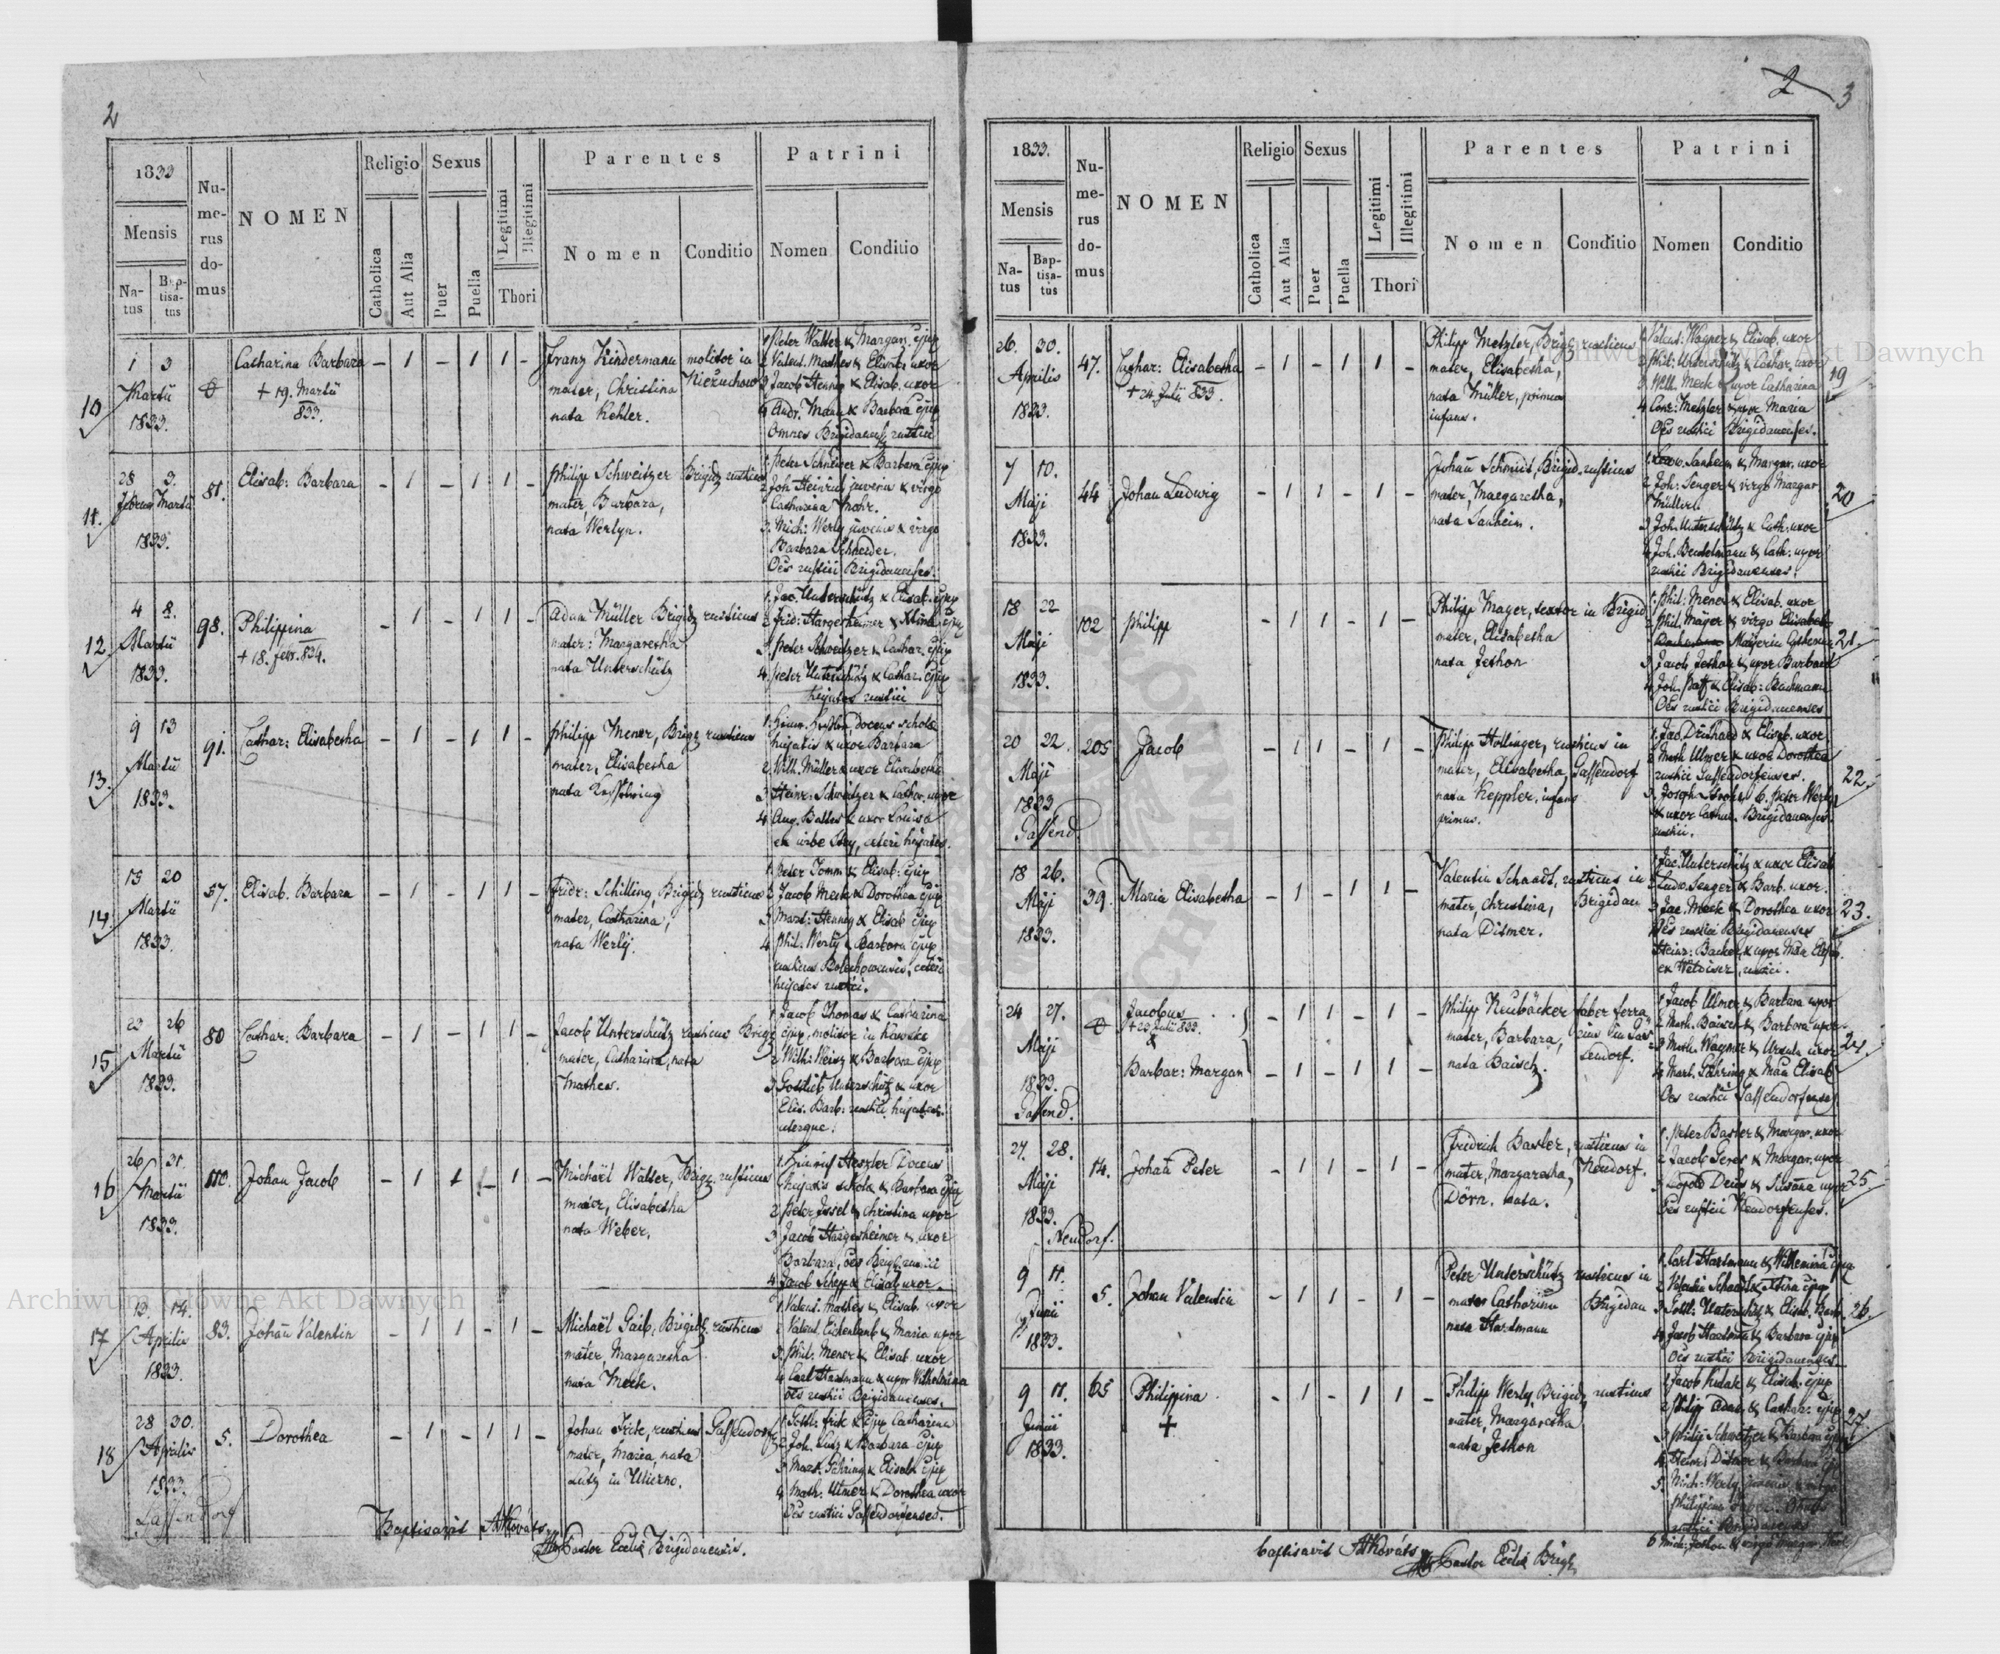 2
1833
Mensis
Na-
tus
Bap-
tisa-
tus
Nu-
me-
rus
do-
mus
NOMEN
Religio
Catholica
Aut Alia
Sexus
Puer
Puella
Legitimi
Illegitimi
Thori
Parentes
Nomen
Conditio
Patrini
Nomen
Conditio
10
1 3
Martii
1833.
Catharina Barbara
+ 19. Martii
833.
- 1 - 1 1 -
Franz Kindermann molitor in
mater, Christina
nata Kehler.
1 Peter Walter & Margar. ejus
2 Valent. Mathes & Elisab. uxor
3 Jacob Henney & Elisab. uxor
4 Andr. Mann & Barbara ejus
Omnes Brigidauenses rustici
11.
28 3.
Februar Martii
1833.
81.
Elisab: Barbara
- 1 - 1 1 -
Philipp Schweitzer Brigid. rusticus
mater, Barbara,
nata Werlyn.
1. Peter Schneider & Barbara ejus
2 Joh. Heinrich juvenis & virgo
Catharina Mohr.
3. Mich: Werly juvenis & virgo
Barbara Schneider.
Oes rustici Brigidauenses.
12.
4 8.
Martii
1833.
98.
Philippina
+ 18. febr. 834.
- 1 - 1 1 -
Adam Müller Brigid. rusticus
mater: Margaretha
nata Unterschütz
1. Jac. Unterschütz & Elisab. ejus
3 Peter Schweitzer & Cathar. ejus
4. Peter Unterschütz & Cathar. ejus
hujates rustici
13.
9 13
Martii
1833.
91.
Cathar: Elisabetha
- 1 - 1 1 -
Philipp Mener, Brigid. rusticus
mater, Elisabetha
hujatis & uxor Barbara
2. Wilh. Müller & uxor Elisabetha
3 Heinr. Schweitzer & Cathar. uxor
ex urbe Stry, ceteri hujates.
14.
15 20
Martii
1833.
57.
Elisab. Barbara
- 1 - 1 1 -
Fridr: Schilling, Brigid. rusticus
mater, Catharina,
nata Werly.
1. Peter Tomm & Elisab. ejus
2 Jacob Meck & Dorothea ejus
3 Mart: Henney & Elisab ejus
4 Phil: Werly & Barbara ejus
hujates rustici.
15
23 26
Martii
1833.
80
Cathar: Barbara
- 1 - 1 1 -
Jacob Unterschütz rusticus Brigid.
mater, Catharina, nata
Mathes.
1 Jacob Thomas & Catharina
2 Wilh: Weisz & Barbara ejus
3 Gottlieb Unterschütz & uxor
Elis. Barb: rustici hujates
uterque.
16
26 31.
Martii
1833.
110.
Johan Jacob
- 1 1 - 1 -
Michaël Walter, Brigid. rusticus
mater, Elisabetha
nata Weber.
hujatis scholæ & Barbara ejus
2 Peter Issel & Christina uxor
3 Jacob Hargesheimer & uxor
Barbara, oes Brigid. rustici
4 Jacob Schepp & Elisab. uxor.
17
13. 14.
Aprilis
1833.
83.
Johan Valentin
- 1 1 - 1 -
Michaël Gaib, Brigid. rusticus
mater, Margaretha
nata Meck.
1. Valent: Mathes & Elisab. uxor
2 Valent. Eichenlaub & Maria uxor
3. Phil: Mener & Elisab. uxor
4 Carl Hartmann & uxor Wilhelmina
oes rustici Brigidauenses.
18
28 30.
Aprilis
1833.
Gassendorf
5.
Dorothea
- 1 - 1 1 -
Johan Frik, rusticus Gassendorf
mater, Maria, nata
Lutz in Uliczno.
1 Gottl: Frik & ejus Catharina
2 Joh. Lutz & Barbara ejus
3 Mart. Gähring & Elisab. ejus
4 Math: Ulmer & Dorothea uxor
Oes rustici Gassendorfenses.
Baptisavit A Kováts
Pastor Eccliæ Brigidauensis.
2 3
1833.
Mensis
Na-
tus
Bap-
tisa-
tus
Nu-
me-
rus
do-
mus
NOMEN
Religio
Catholica
Aut Alia
Sexus
Puer
Puella
Legitimi
Illegitimi
Thori
Parentes
Nomen
Conditio
Patrini
Nomen
Conditio
26. 30.
Aprilis
1833.
47.
Cathar: Elisabetha
+ 24 Julii 833.
- 1 - 1 1 -
Philipp Metzler, Brigid. rusticus
mater, Elisabetha,
nata Müller, primus
infans.
1 Valent: Wagner & Elisab. uxor
2 Phil: Unterschütz & Cathar. uxor
3. Wilh. Meck & uxor Catharina
4 Conr: Metzler & uxor Maria
Oes rustici Brigidauenses.
19
7 10.
Maji
1833.
44
Johan Ludwig
- 1 1 - 1 -
Johan Schmidt, Brigid. rusticus
mater, Margaretha,
nata Sauheim.
2 Joh: Senger & virgo Margar
3 Joh. Unterschütz & Cath. uxor
4 Joh. Beutelmann & Cath: uxor
rustici Brigidauenses.
20
18 22
Maji
1833.
102
Philipp
- 1 1 - 1 -
Philipp Mayer, textor in Brigid
mater, Elisabetha
nata Jethon
1. Phil: Mener & Elisab. uxor
2 Phil. Mayer & virgo Elisabeth
3 Jacob Jethon & uxor Barbara
Oes rustici Brigidauenses
21.
20 22.
Maji
1833
Gassend
205
Jacob
- 1 1 - 1 -
Philipp Hollinger, rusticus in
mater, Elisabetha, Gassendorf
nata Keppler, infans
primus.
2 Math Ulmer & uxor Dorothea
rustici Gassendorfenses.
& uxor Cathar. Brigidauenses
rustici.
22.
18 26.
Maji
1833.
39.
Maria Elisabetha
- 1 - 1 1 -
Valentin Schaadt, rusticus in
mater, Christina, Brigidau
nata Ditmer.
1. Jac. Unterschütz & uxor Elisab
2 Ludw. Senger & Barb. uxor.
3 Jac. Meck & Dorothea uxor
Oes rustici Brigidauenses
23.
24 27.
Maji
1833.
Gassend.
Jacobus
+ 29 Julii 833.
&
Barbar: Margar
- 1 1 - 1 -
- 1 - 1 1 -
Philipp Neubäcker faber ferra
mater, Barbara,
nata Baisch.
1 Jacob Ulmer & Barbara uxor
2 Math. Baisch & Barbara uxor
3 Math. Wagner & Ursula uxor
4 Mart. Gähring & Mar. Elisab.
Oes rustici Gassendorfenses.
24.
27. 28.
Maji
1833.
Neudorf.
14.
Johan Peter
- 1 1 - 1 -
Fridrich Basler, rusticus in
mater, Margaretha, Neudorf.
Dörn. nata.
1. Peter Basler & Margar. uxor
2 Jacob Geres & Margar. uxor
Oes rustici Neudorfenses.
25.
9 11.
Junii
1833.
5.
Johan Valentin
- 1 1 - 1 -
Peter Unterschütz rusticus in
mater Catharina Brigidau
nata Hartmann
1. Carl Hartmann & Wilhemina ejus
2 Valentin Schaadt & Xtina ejus
3 Gottl: Unterschütz & Elisab. Barb.
4 Jacob Hartmann & Barbara ejus
Oes rustici Brigidauenses.
26.
9 11.
Junii
1833.
65
Philippina
+
- 1 - 1 1 -
Philipp Werly, Brigid. rusticus
mater, Margaretha
nata Jethon
1 Jacob Kulak & Elisab. ejus
2 Philip Adam & Cathar. ejus
3 Philip Schweitzer & Barbara ejus
4 Heinr. Ditmer & Barbara ejus
27.
baptisavit A Kováts
Pastor Eccliæ Brigid.
Archiwum Główne Akt Dawnych
Archiwum Główne Akt Dawnych